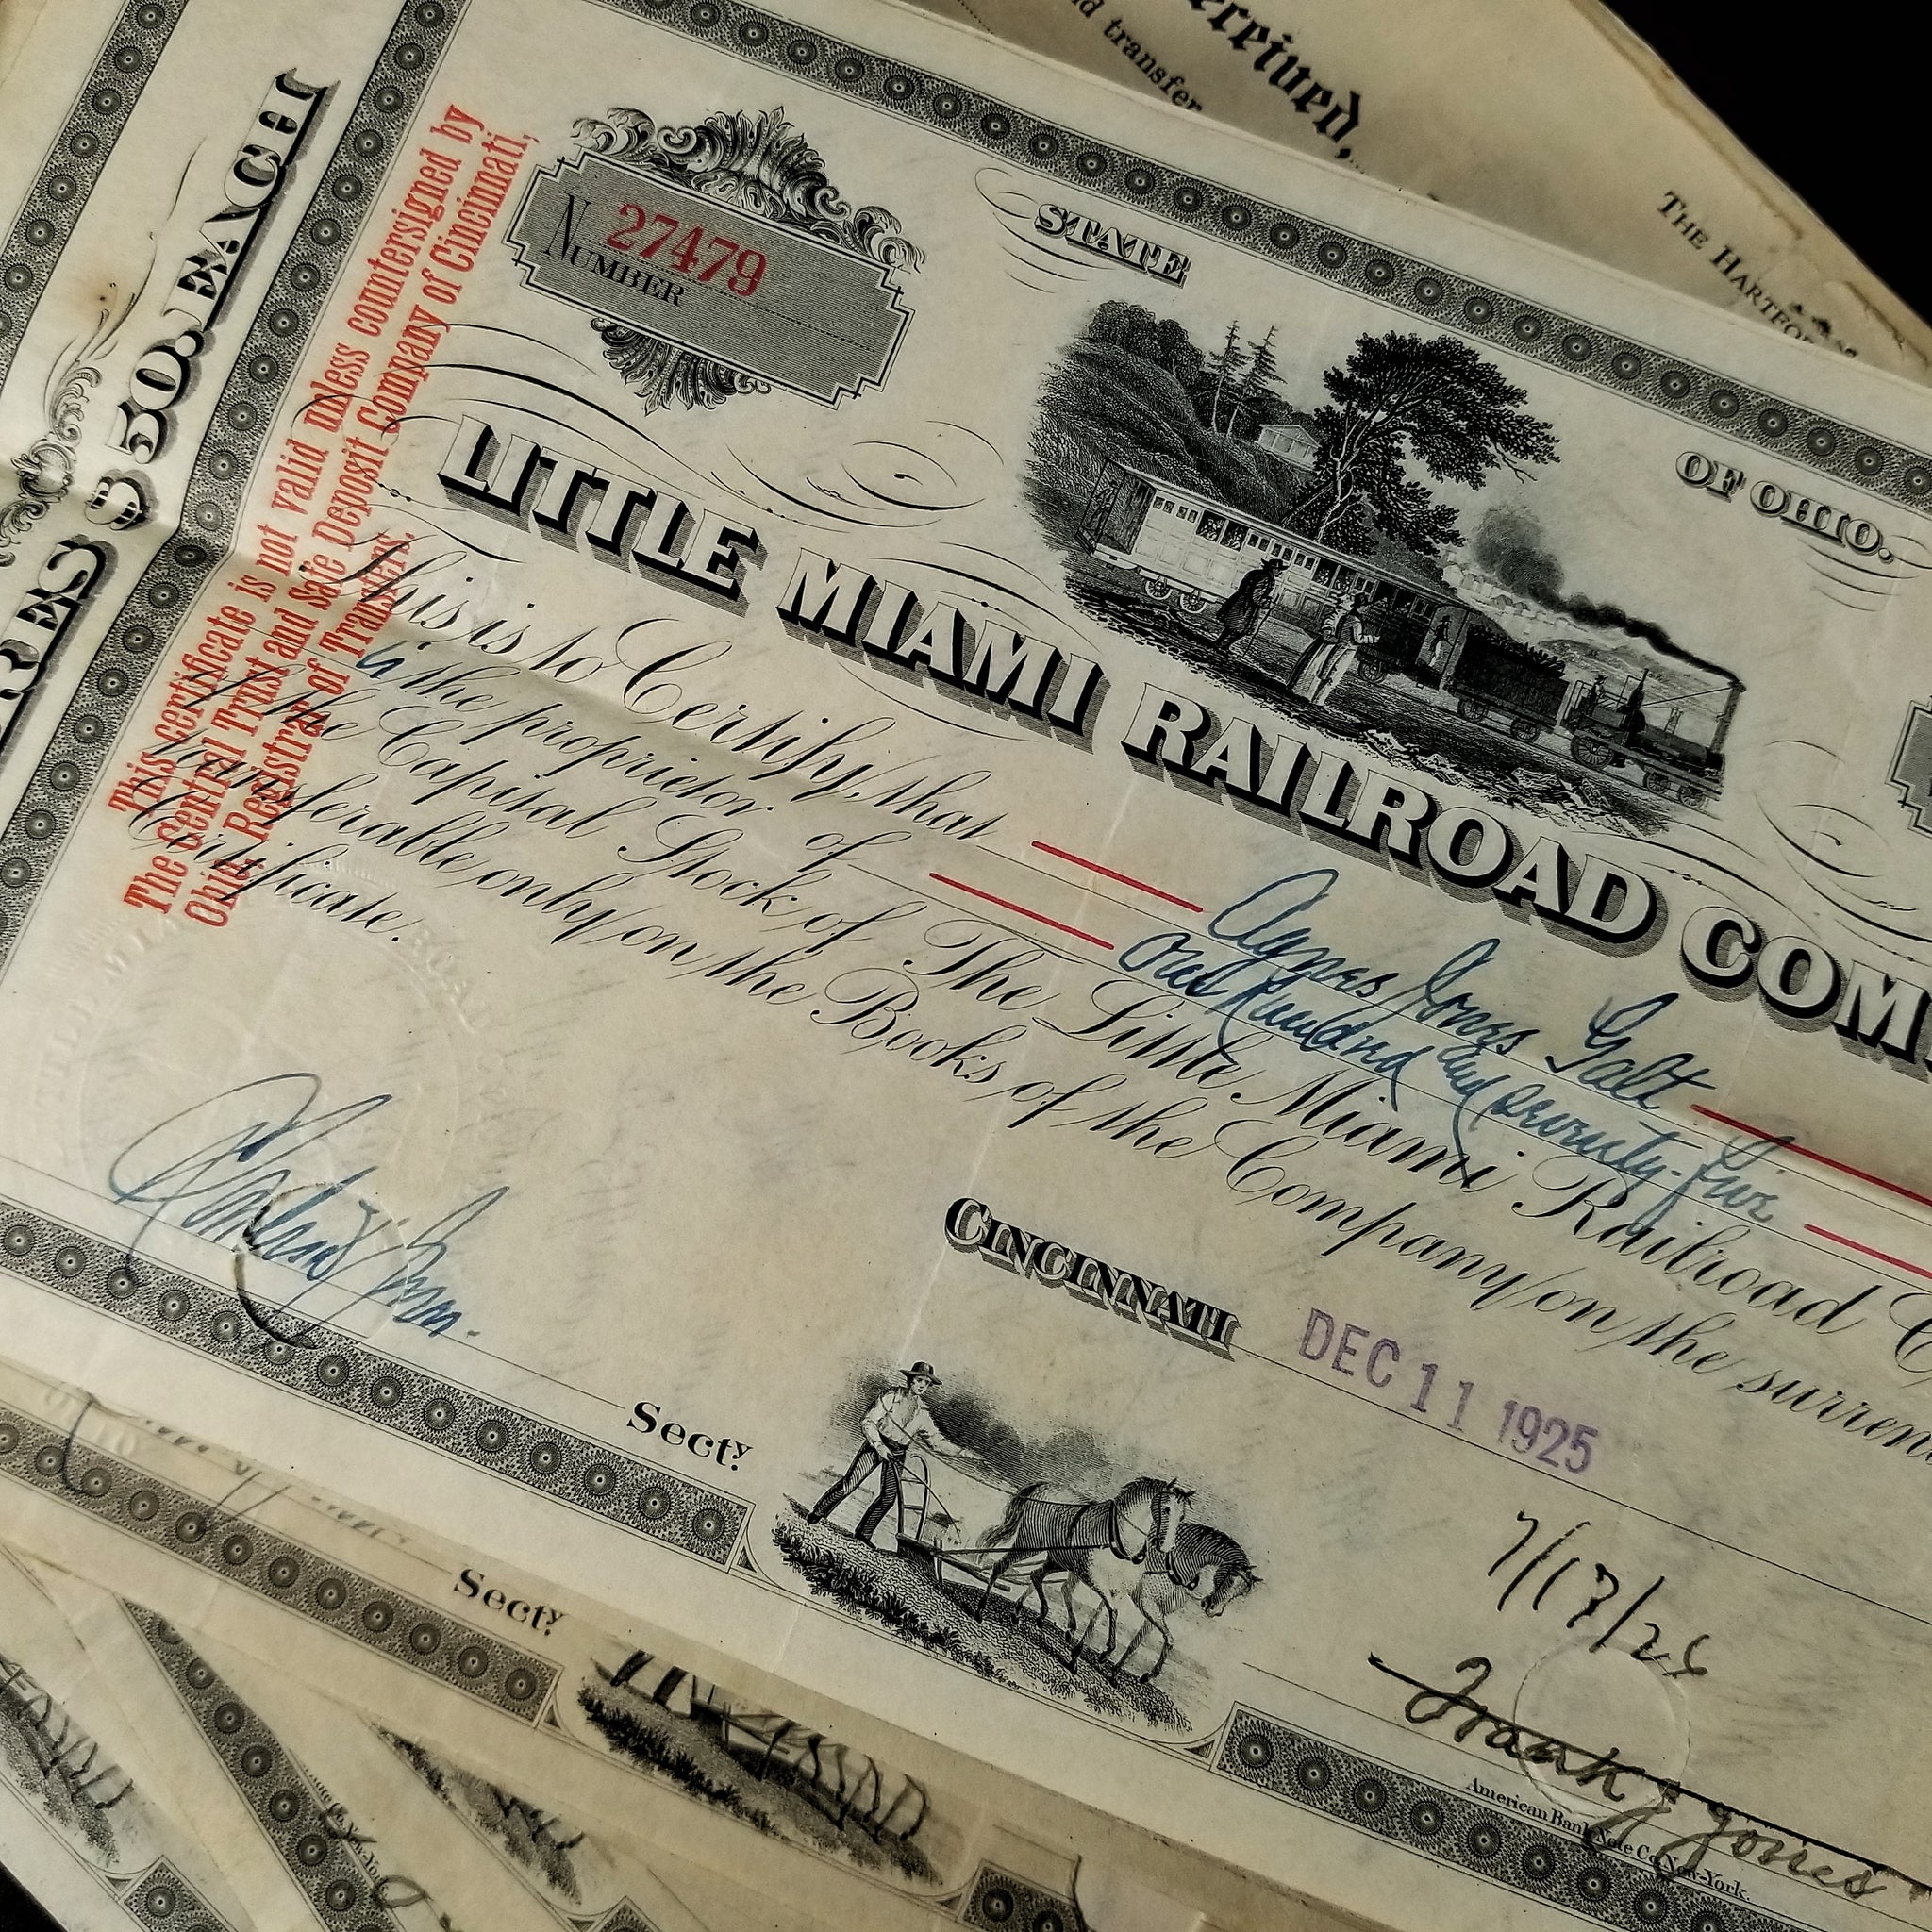 eceived,
d transfer
THE HARTFO
RES $50. EACH
This certificate is not valid unless countersigned by
The Central Trust and Safe Deposit Company of Cincinnati,
Ohio, Registrar of Transfers.
NUMBER 27479
STATE OF OHIO.
LITTLE MIAMI RAILROAD COM
This is to Certify that Agnes Jones Galt
is the proprietor of One Hundred and seventy-five
of the Capital Stock of The Little Miami Railroad C
transferable only on the Books of the Company on the surren
Certificate.
CINCINNATI DEC 11 1925
Secty.
7/17/26
Frank J Jones
American Bank Note Co. New-York.
Secty.
New-York